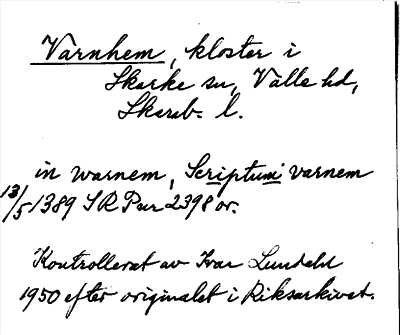 Varnhem, kloster i
Skarke sn, Valle hd,
Skarab. l.
in warnem, Scriptum varnem
13/5 1389 SRPur 2398 or.
Kontrollerat av Ivar Lundahl
1950 efter originalet i Riksarkivet.